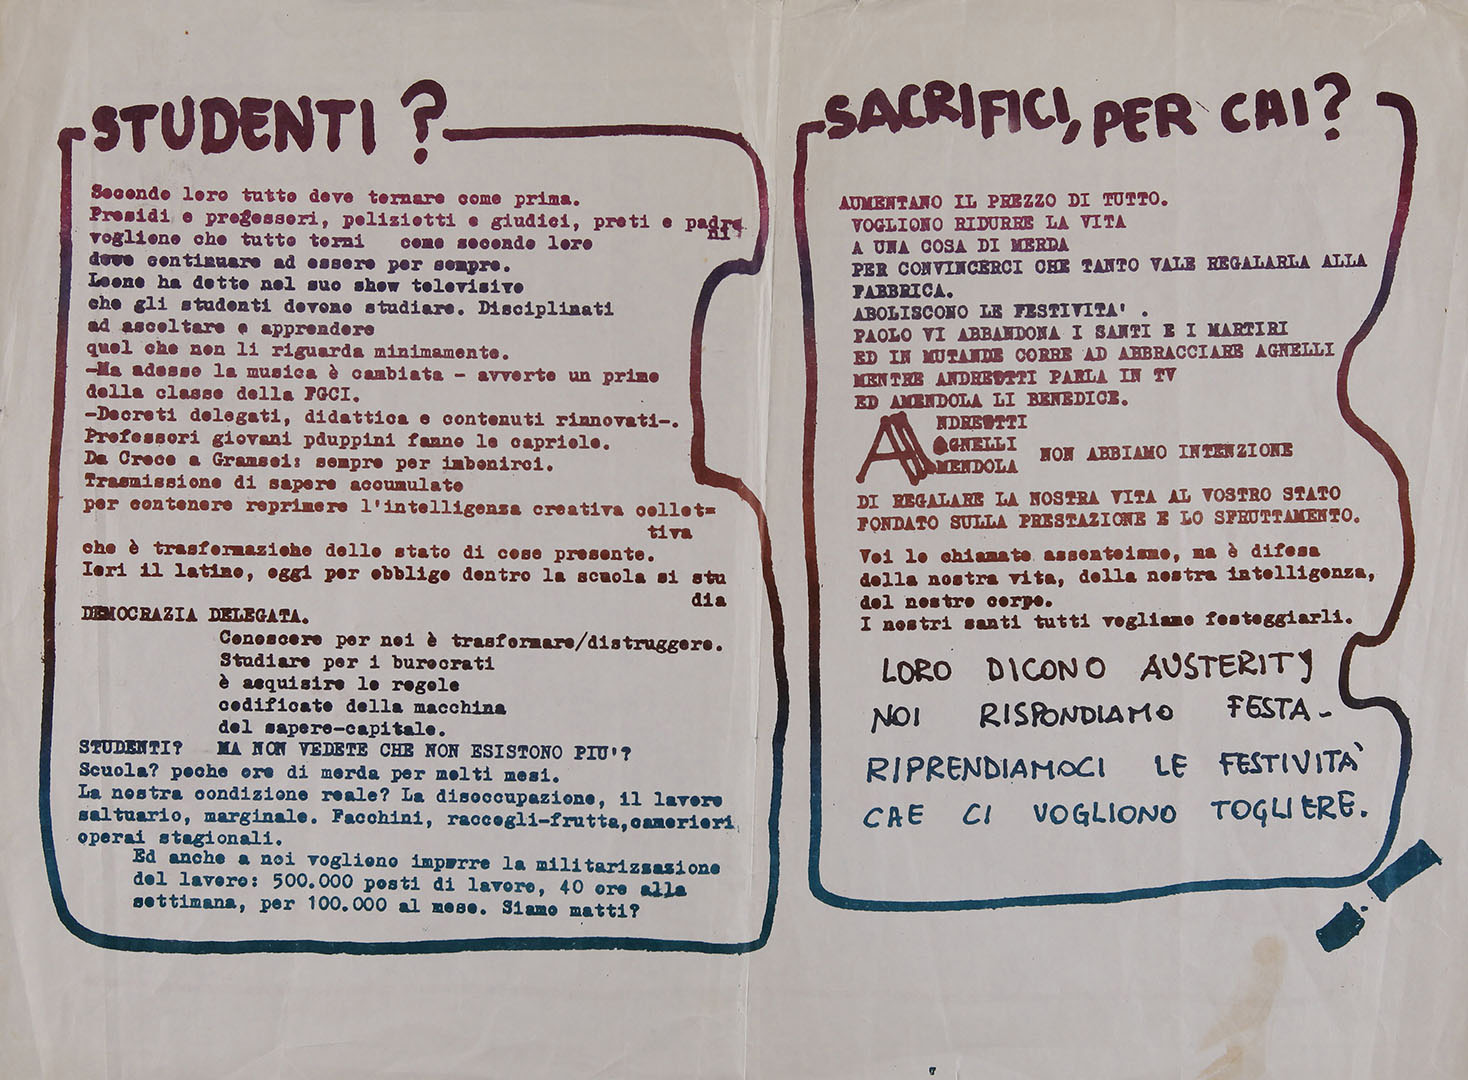 STUDENTI?
Secondo loro tutto deve tornare come prima.
Presidi e professori, poliziotti e giudici, preti e padro
ni
vogliono che tutto torni come secondo loro
deve continuare ad essere per sempre.
Leone ha detto nel suo show televisivo
che gli studenti devono studiare. Disciplinati
ad ascoltare e apprendere
quel che non li riguarda minimamente.
-Ma adesso la musica è cambiata - avverte un primo
della classe della FGCI.
-Decreti delegati, didattica e contenuti rinnovati-.
Professori giovani pduppini fanno le capriole.
Da Croce a Gramsci: sempre per imbonirci.
Trasmissione di sapere accumulato
per contenere reprimere l'intelligenza creativa collet=
tiva
che è trasformaziohe dello stato di cose presente.
Ieri il latino, oggi per obbligo dentro la scuola si stu
dia
DEMOCRAZIA DELEGATA.
Conoscere per noi è trasformare/distruggere.
Studiare per i burocrati
è acquisire le regole
codificate della macchina
del sapere-capitale.
STUDENTI? MA NON VEDETE CHE NON ESISTONO PIU'?
Scuola? poche ore di merda per molti mesi.
La nostra condizione reale? La disoccupazione, il lavoro
saltuario, marginale. Facchini, raccogli-frutta,camerieri,
operai stagionali.
Ed anche a noi vogliono imporre la militarizzazione
del lavoro: 500.000 posti di lavoro, 40 ore alla
settimana, per 100.000 al mese. Siamo matti?
SACRIFICI, PER CHI?
AUMENTANO IL PREZZO DI TUTTO.
VOGLIONO RIDURRE LA VITA
A UNA COSA DI MERDA
PER CONVINCERCI CHE TANTO VALE REGALARLA ALLA
FABBRICA.
ABOLISCONO LE FESTIVITA' .
PAOLO VI ABBANDONA I SANTI E I MARTIRI
ED IN MUTANDE CORRE AD ABBRACCIARE AGNELLI
MENTRE ANDREOTTI PARLA IN TV
ED AMENDOLA LI BENEDICE.
ANDREOTTI
AGNELLI
AMENDOLA NON ABBIAMO INTENZIONE
DI REGALARE LA NOSTRA VITA AL VOSTRO STATO
FONDATO SULLA PRESTAZIONE E LO SFRUTTAMENTO.
Voi lo chiamate assenteismo, ma è difesa
della nostra vita, della nostra intelligenza,
del nostro corpo.
I nostri santi tutti vogliamo festeggiarli.
LORO DICONO AUSTERITY
NOI RISPONDIAMO FESTA-
RIPRENDIAMOCI LE FESTIVITÀ
CHE CI VOGLIONO TOGLIERE.